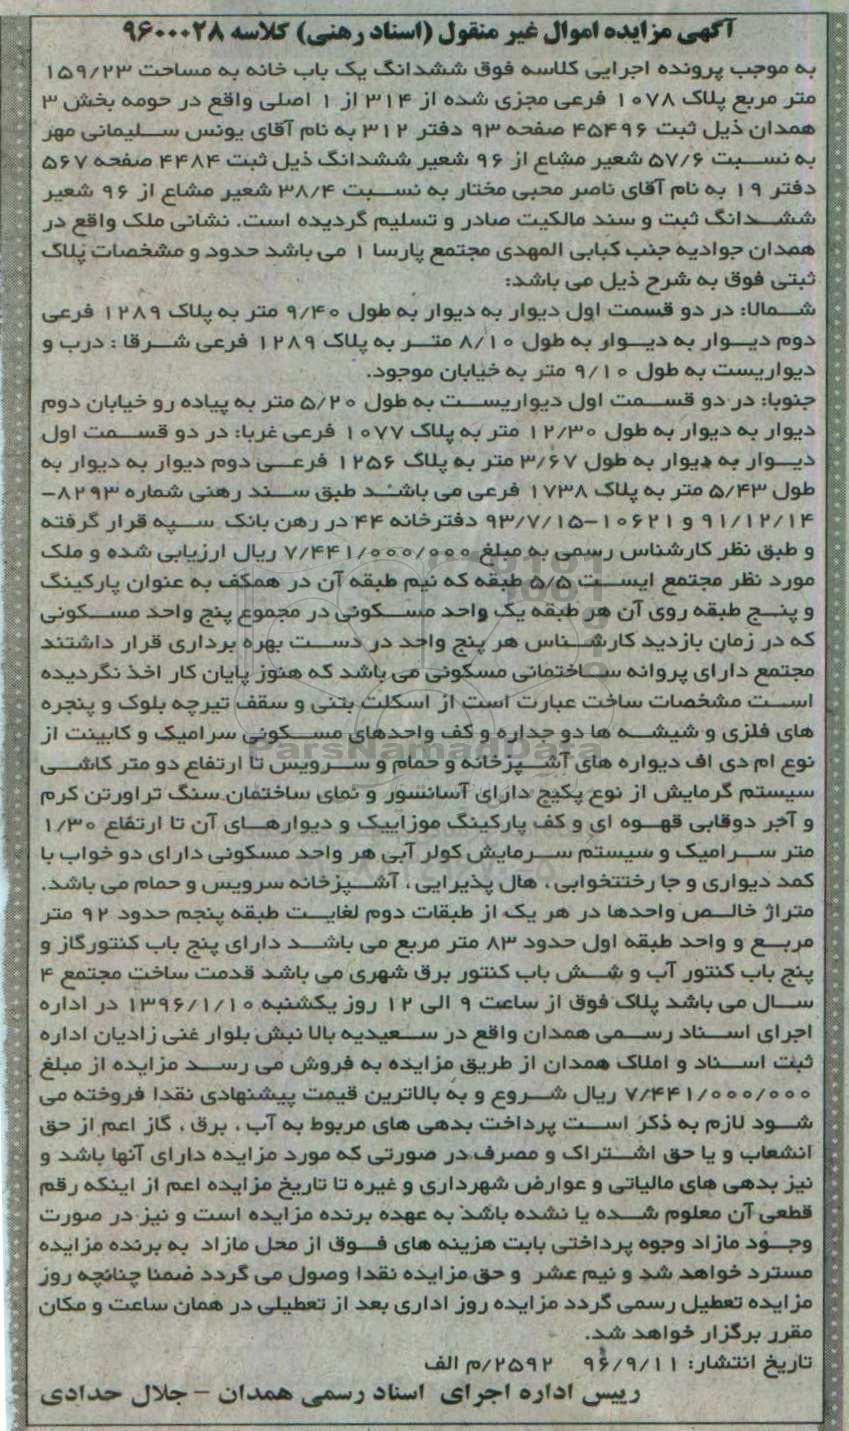 آگهی مزایده اموال غیر منقول (اسناد رهنی) کلاسه ۹۶۰۰۰۲۸
به موجب پرونده اجرایی کلاسه فوق ششدانگ یک باب خانه به مساحت ۱۵۹/۲۳
متر مربع پلاک ۱۰۷۸ فرعی مجزی شده از ۳۱۴ از ۱ اصلی واقع در حومه بخش ۳
همدان ذیل ثبت ۴۵۴۹۶ صفحه ۹۳ دفتر ۳۱۲ به نام آقای یونس سلیمانی مهر
به نسبت ۵۷/۶ شعیر مشاع از ۹۶ شعیر ششدانگ ذیل ثبت ۴۴۸۴ صفحه ۵۶۷
دفتر ۱۹ به نام آقای ناصر محبی مختار به نسبت ۳۸/۴ شعیر مشاع از ۹۶ شعیر
ششدانگ ثبت و سند مالکیت صادر و تسلیم گردیده است. نشانی ملک واقع در
همدان جوادیه جنب کبابی المهدی مجتمع پارسا ۱ می باشد حدود و مشخصات پلاک
ثبتی فوق به شرح ذیل می باشد:
شمالا: در دو قسمت اول دیوار به دیوار به طول ۹/۴۰ متر به پلاک ۱۲۸۹ فرعی
دوم دیوار به دیوار به طول ۸/۱۰ متر به پلاک ۱۲۸۹ فرعی شرقا : درب و
دیواریست به طول ۹/۱۰ متر به خیابان موجود.
جنوبا: در دو قسمت اول دیواریست به طول ۵/۲۰ متر به پیاده رو خیابان دوم
دیوار به دیوار به طول ۱۲/۳۰ متر به پلاک ۱۰۷۷ فرعی غربا: در دو قسمت اول
دیوار به دیوار به طول ۳/۶۷ متر به پلاک ۱۲۵۶ فرعی دوم دیوار به دیوار به
طول ۵/۴۳ متر به پلاک ۱۷۳۸ فرعی می باشند طبق سند رهنی شماره ۸۲۹۳-
۹۱/۱۲/۱۴ و ۱۰۶۲۱-۹۳/۷/۱۵ دفترخانه ۴۴ در رهن بانک سپه قرار گرفته
و طبق نظر کارشناس رسمی به مبلغ ۷/۴۴۱/۰۰۰/۰۰۰ ریال ارزیابی شده و ملک
مورد نظر مجتمع ایست ۵/۵ طبقه که نیم طبقه آن در همکف به عنوان پارکینگ
و پنج طبقه روی آن هر طبقه یک واحد مسکونی در مجموع پنج واحد مسکونی
که در زمان بازدید کارشناس هر پنج واحد در دست بهره برداری قرار داشتند
مجتمع دارای پروانه ساختمانی مسکونی می باشد که هنوز پایان کار اخذ نگردیده
است مشخصات ساخت عبارت است از اسکلت بتنی و سقف تیرچه بلوک و پنجره
های فلزی و شیشه ها دو جداره و کف واحدهای مسکونی سرامیک و کابینت از
نوع ام دی اف دیواره های آشپزخانه و حمام و سرویس تا ارتفاع دو متر کاشی
سیستم گرمایش از نوع پکیج دارای آسانسور و نمای ساختمان سنگ تراورتن کرم
و آجر دوقابی قهوه ای و کف پارکینگ موزاییک و دیوارهای آن تا ارتفاع ۱/۳۰
متر سرامیک و سیستم سرمایش کولر آبی هر واحد مسکونی دارای دو خواب با
کمد دیواری و جا رختخوابی، هال پذیرایی، آشپزخانه سرویس و حمام می باشد.
متراژ خالص واحدها در هر یک از طبقات دوم لغایت طبقه پنجم حدود ۹۲ متر
مربع و واحد طبقه اول حدود ۸۳ متر مربع می باشد دارای پنج باب کنتورگاز و
پنج باب کنتور آب و شش باب کنتور برق شهری می باشد قدمت ساخت مجتمع ۴
سال می باشد پلاک فوق از ساعت ۹ الی ۱۲ روز یکشنبه ۱۳۹۶/۱/۱۰ در اداره
اجرای اسناد رسمی همدان واقع در سعیدیه بالا نبش بلوار غنی زادیان اداره
ثبت اسناد و املاک همدان از طریق مزایده به فروش می رسد مزایده از مبلغ
۷/۴۴۱/۰۰۰/۰۰۰ ریال شروع و به بالاترین قیمت پیشنهادی نقدا فروخته می
شود لازم به ذکر است پرداخت بدهی های مربوط به آب، برق، گاز اعم از حق
انشعاب و یا حق اشتراک و مصرف در صورتی که مورد مزایده دارای آنها باشد و
نیز بدهی های مالیاتی و عوارض شهرداری و غیره تا تاریخ مزایده اعم از اینکه رقم
قطعی آن معلوم شده یا نشده باشد به عهده برنده مزایده است و نیز در صورت
وجود مازاد وجوه پرداختی بابت هزینه های فوق از محل مازاد به برنده مزایده
مسترد خواهد شد و نیم عشر و حق مزایده نقدا وصول می گردد ضمنا چنانچه روز
مزایده تعطیل رسمی گردد مزایده روز اداری بعد از تعطیلی در همان ساعت و مکان
مقرر برگزار خواهد شد.
تاریخ انتشار: ۹۶/۹/۱۱ ۲۵۹۲/م الف
رییس اداره اجرای اسناد رسمی همدان - جلال حدادی
ParsNamadData